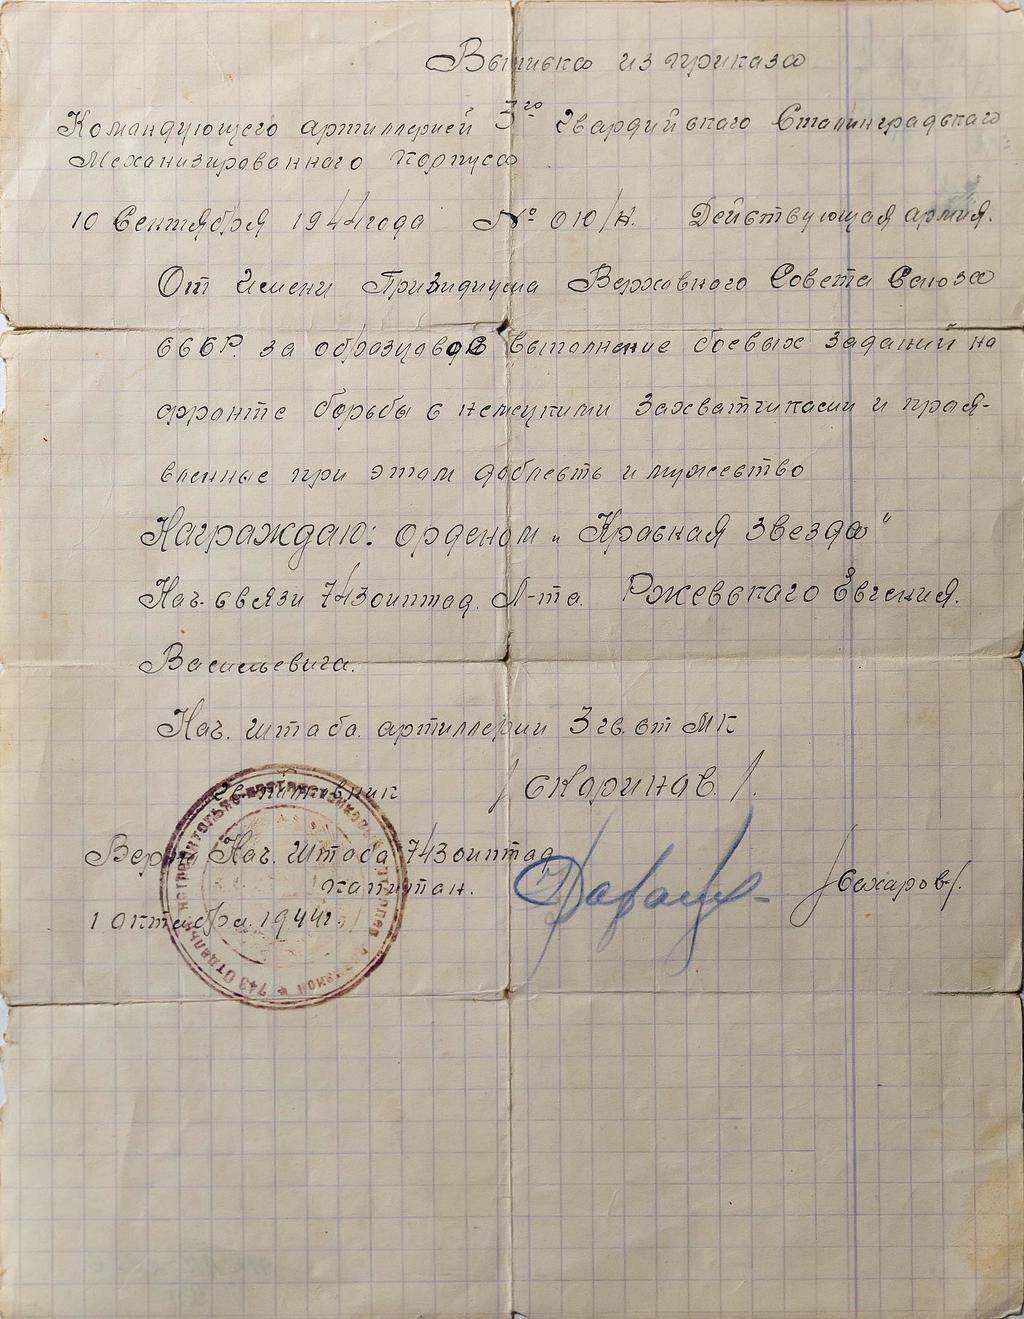 Выписка из приказа
Командующего артиллерией 3го Гвардийского Сталинградского
Механизированного Корпуса
10 Сентября 1944 года № 010/н. Действующая армия.
От Имени Призидиума Верховного Совета Союза
СССР. за образцовое выполнение боевых заданий на
фронте борьбы с немецкими захватчиками и прояв-
вленные при этом доблесть и мужество
Награждаю: орденом „Красная Звезда"
Нач. связи 743 оиптад. Л-та. Ржевского Евгения.
Васильевича.
Нач. штаба. артиллерии 3 гв. ст МК
Гв. полковник / Скаринов. /.
Верно Нач. Штаба 743 оиптад
капитан. /Сахаров/.
1 октября. 1944г.
743 Отдельн